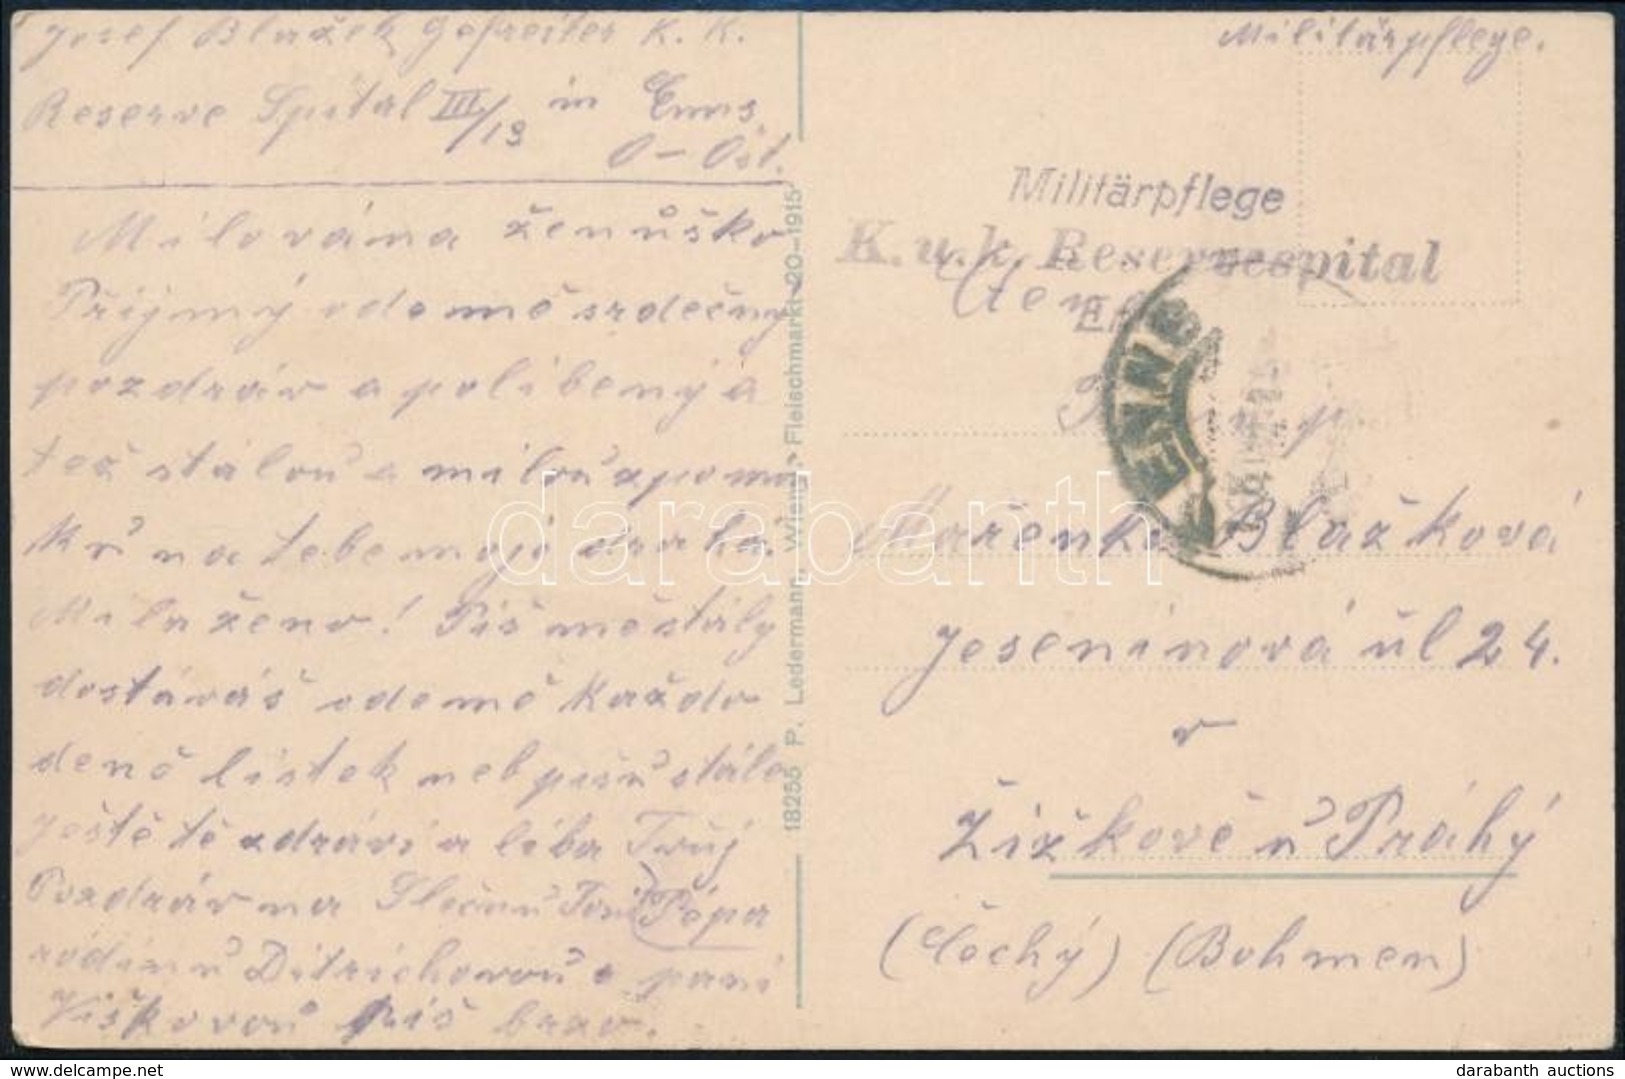 Josef Blažek Gefreiter K. K.
Reserve Spital III/13 in Enns
O-Öst.
Milována ženůško
Přijmý odemně srdečný
pozdráv a polibený a
též stálou a milou zpomí
ků na tebe mojí drahá
Milaženo! Píš mě stály
dostáváš odemě každo
deně lístek neb píšu stále
ještě tě zdráví a líba Tvůj
Pozdráv na Slečnu Toni Pépa
rodinu Ditrichovou a paní
Viškovou píš brzo.
18255 P. Ledermann, Wien I., Fleischmarkt 20-1915
Militärpflege.
Militärpflege
K. u. k. Reservespital
ENNS
Mařenka Blažková
Jeseninová ul 24.
v
Žižkově u Práhý
(Čéchý) (Bohmen)
darabanth
darabanth auctions